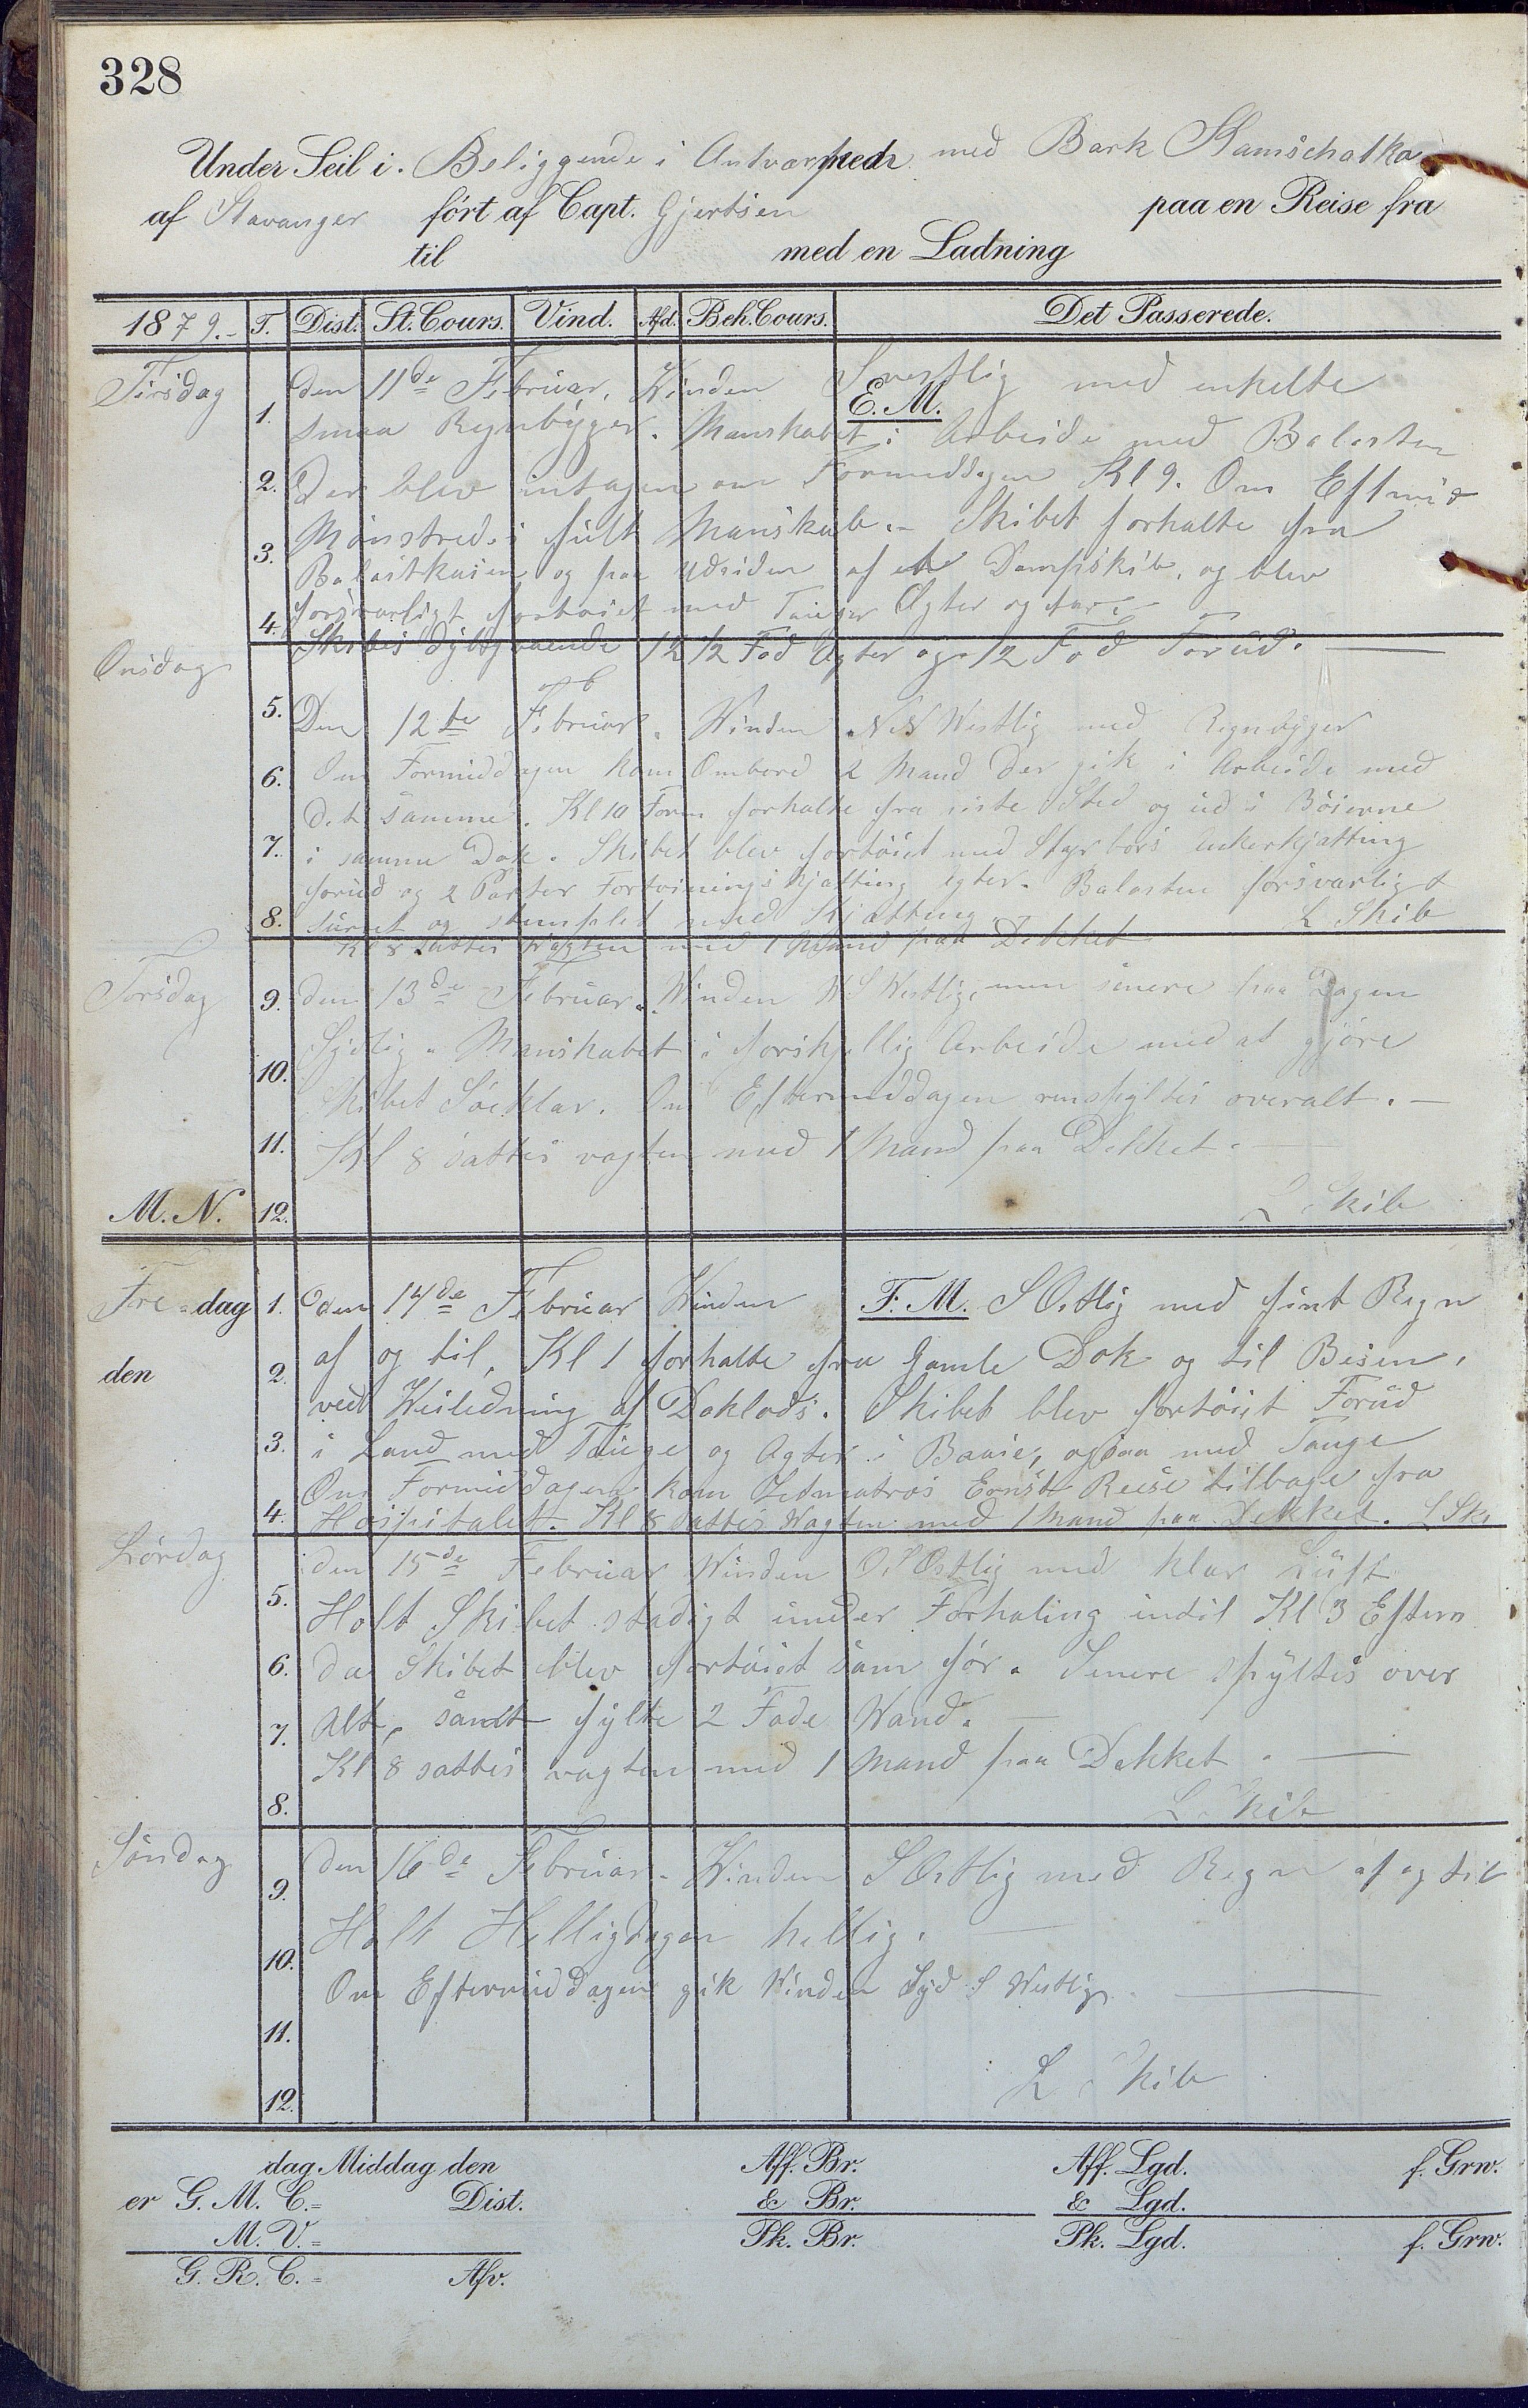 328
Under Seil i. Beliggende i Antværpen med Bark Kamschatka
af Stavanger ført af Capt. Gjertsen paa en Reise fra
til med en Ladning
1879.- T. Dist. St. Cours. Vind. Afd. Beh. Cours. Det Passerede.
Tirsdag den 11de Februar, Winden S vestlig med enkelte
E. M.
1. smaa Regnbyger. Manskabet i Arbeide med Balasten
2. Der blev intagen om Formiddagen Kl 9. Om Eftmid
Mønstredes fult Manskab.- Skibet forhalte fra
3. Balastkaien og paa Udsiden af et Dampskib, og blev
4. forsvarligt fortøiet med Tauger Agter og for.-
Skibes Dybgaaende 12 1/2 Fod Agter og 12 Fod Forud.
Onsdag
5. Den 12te Februar. Winden N.N Westlig med Regnbyger
6. Om Formiddagen kom Ombord 2 Mand der gik i Arbeide med
det samme. Kl 10 Form forhalte fra siste Sted og ud i Bøierne
7. i samme Dok. Skibet blev fortøiet med Styrbors Ankerkjætting
forud og 2 Parter Fortøinings Kjætting agter. Balasten forsvarligt
8. surret og stemplet med Kjætting. L Skib
Kl 8 sattes Wagten med 1 Mand paa Dekket
Torsdag
9. den 13de Februar. Winden W S Westlig, men senere paa Dagen
Sydlig. Manskabet i forskjellig Arbeide med at gjøre
10. Skibet Søeklar. Om Eftermiddagen renspyltes overalt.-
11. Kl 8 sattes vagten med 1 Mand paa Dekket.
M. N. 12. L Skib
Fre-dag 1. den 14de Februar Winden F. M. S Ostlig med fint Regn
den 2. af og til, Kl 1 forhalte fra gamle Dok og til
ved Weiledning af Doklods. Skibet blev fortøiet Forud
3. i Land med Tauge og Agter i Baaie, ogsaa med Tauge
Om Formiddagen kom Letmatros Ernst Reese tilbage fra
4. Hospitalet. Kl 8 sattes Wagten med 1 Mand paa Dekket. L Sk
Lørdag den 15de Februar Winden O.S Ostlig med klar Luft
5. Holt Skibet stadigt under Forhaling indtil Kl 3 Efterm
6. da Skibet blev fortøiet som før. Senere spyltes over
7. Alt, samt fylte 2 Fade Wand.-
Kl 8 sattes vagten med 1 Mand paa Dekket.
8. L Skib
Søndag
9. den 16de Februar. Winden S Ostlig med Regn af og til
10. Holt Helligdagen hellig.
Om Eftermiddagen gik Winden Syd S Westlig.
11.
L Skib
12.
dag Middag den Aff. Br. Aff. Lgd. f. Grw.
er G. M. C.= Dist. & Br. & Lgd.
M. V.= Pk. Br. Pk. Lgd. f. Grw.
G. R. C.= Afv.